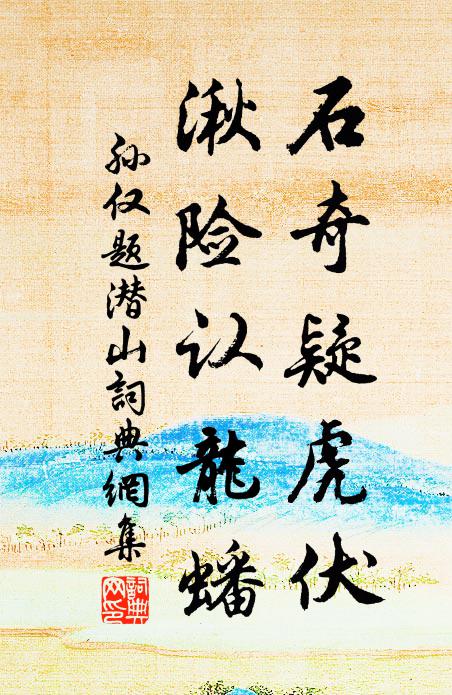 石奇疑虎伏
湫险认龍蟠
孙仅题潜山詞典網集
詞典网印